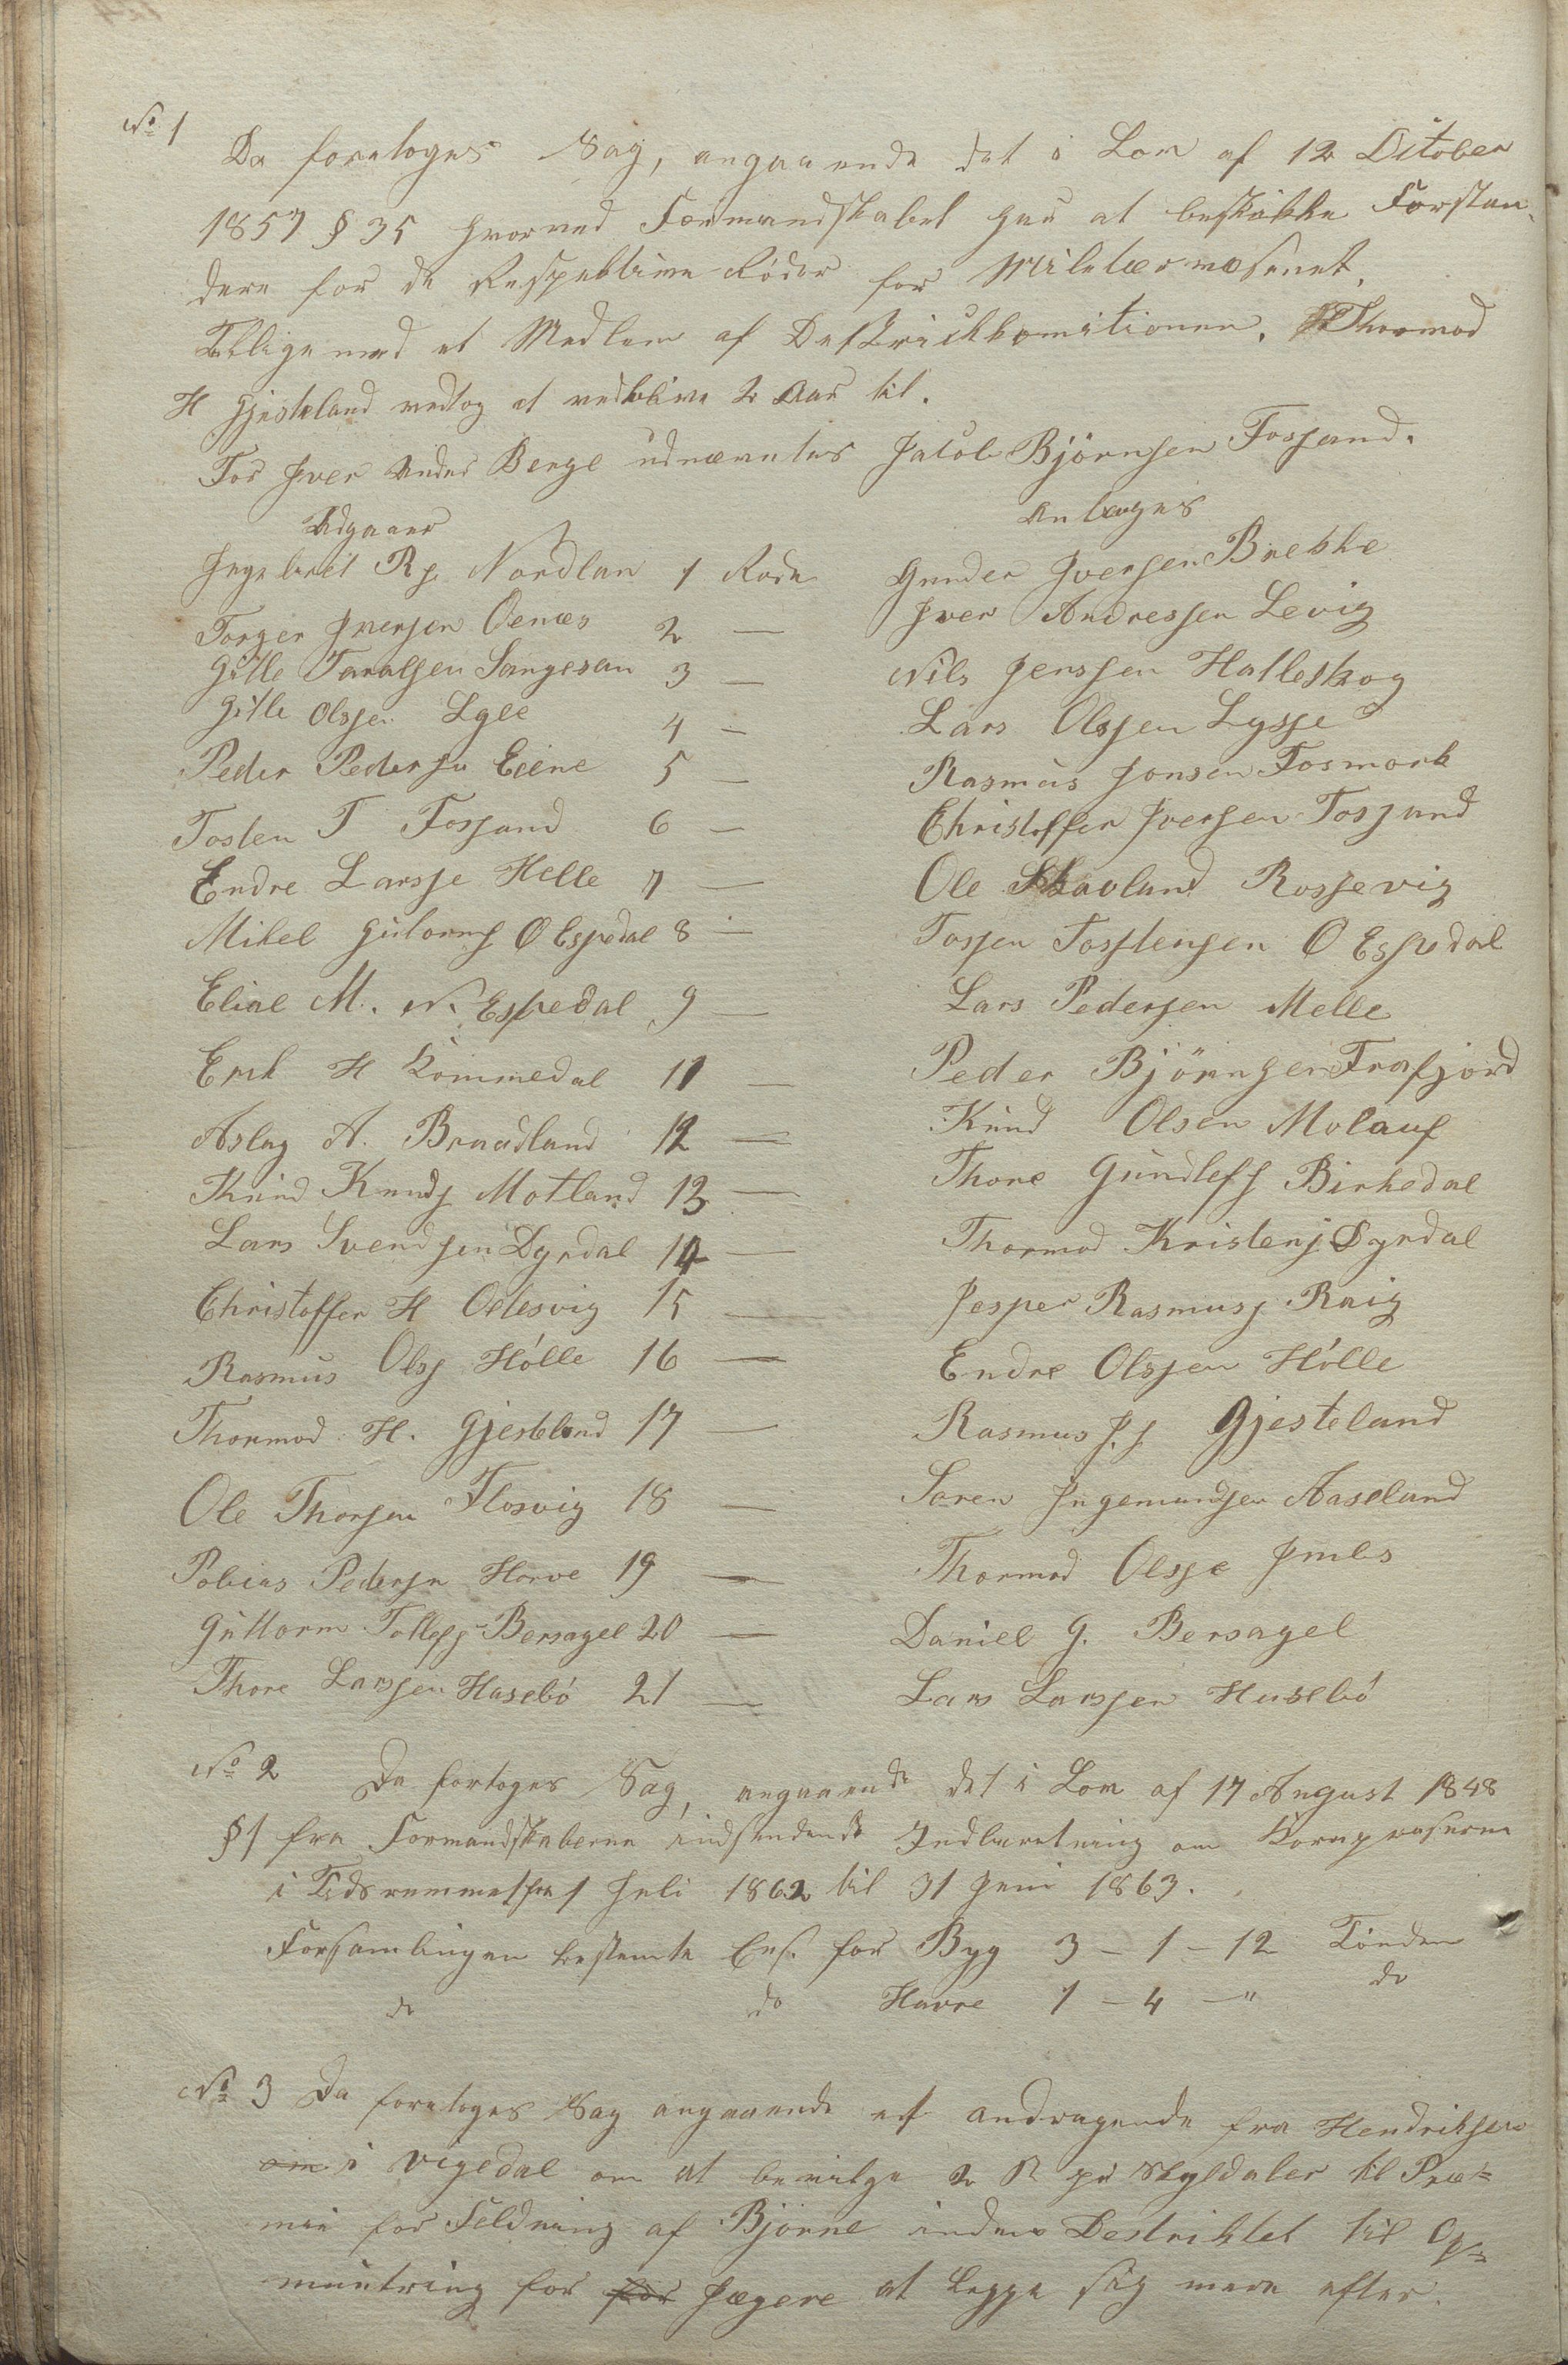 No 1
Da foretoges Sag, angaaende det i Lov af 12 October
1857 § 35 hvorved Formandskabet har at beskikke Forstan-
dere for de Respektive Roder for Militærvæsenet,
Tillige med et Medlem af Thormod
H Gjesteland vedtog at vedblive 2 Aar til.
For Iver Berge udnævntes Jacob Björnsen Fossand.
Udgaaer Antages
Ingebret Rs. Nordlan 1 Rode Gunder Iversen Brekke
Torger Iversen Oenæs 2 — Iver Andressen Levig
Gitle Taralsen Sangesan 3 — Nils Jenssen Halleskog
Gitle Olssen Lyse 4 — Lars Olssen Lysse
Peder Pedersen Eiene 5 — Rasmus Jonsen Fosmork
Tosten T Fossand 6 — Christoffer Iversen Fossand
Endre Larsse Helle 7 — Ole Skavland Rossevig
Mikel Gutorms O Espedal 8 — Tossen Tosstensen O Espedal
Eliae M. N. Espedal 9 — Lars Pedersen Melle
H Kommedal 11 — Peder Björnsen Frafjord
Aslag A. Braadland 12 — Knud Olsen Molauf
Knud Knuds Motland 13 — Thore Gundlefs Birkedal
Lars Svendsen Dyrdal 14 — Thormod Kristens Dyrdal
Christoffer H Oelesvig 15 — Jesper Rasmuss Raig
Rasmus Olss Hólle 16 — Endre Olssen Hólle
Thormod H. Gjesteland 17 — Rasmus J. J. Gjesteland
Ole Thorsen Flosvig 18 — Soren Ingemundsen Aaseland
Tobias Pedersen Horve 19 — Thormod Olsse
Guttorm Tollefs Bersagel 20 — Daniel G. Bersagel
Thore Larssen Hasebó 21 — Lars Larssen Husebó
No 2 Da fortoges Sag, angaaende det i Lov af 17 August 1848
§ 1 fra Formandskaberne indsendende Indberetning om Kornpriserne
i Tidsrummet fra 1 Juli 1862 til 31 Juni 1863.
Forsamlingen bestemte for Byg 3 – 1 – 12 Tönden
do do Havre 1 – 4 – " do
No 3 Da foretoges Sag angaaende et andragende fra Hendriksen
om i Vigedal om at bevilge 2 ß pr Skyldaler til Præ=
mie for Feldning af Björne inden Destriktet til Op=
muntring for for Jægere at legge sig mere efter.